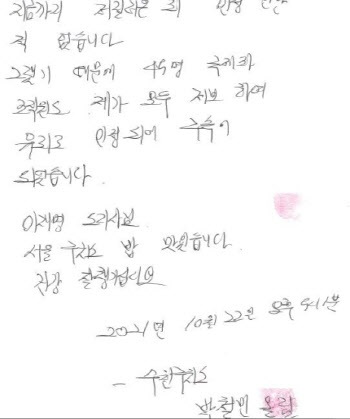 지금까지 저질러온 죄 인정 안한
적 없습니다
그렇기 때문에 45명 국제파
조직원도 제가 모두 제보하여
유죄로 인정되어 구속이
되었습니다.
이재명 도지사님
서울 구치소 밥 맛있습니다.
건강 잘 챙기십시오
2021년 10월 22일 오후
- 수원구치소
박철민 올림